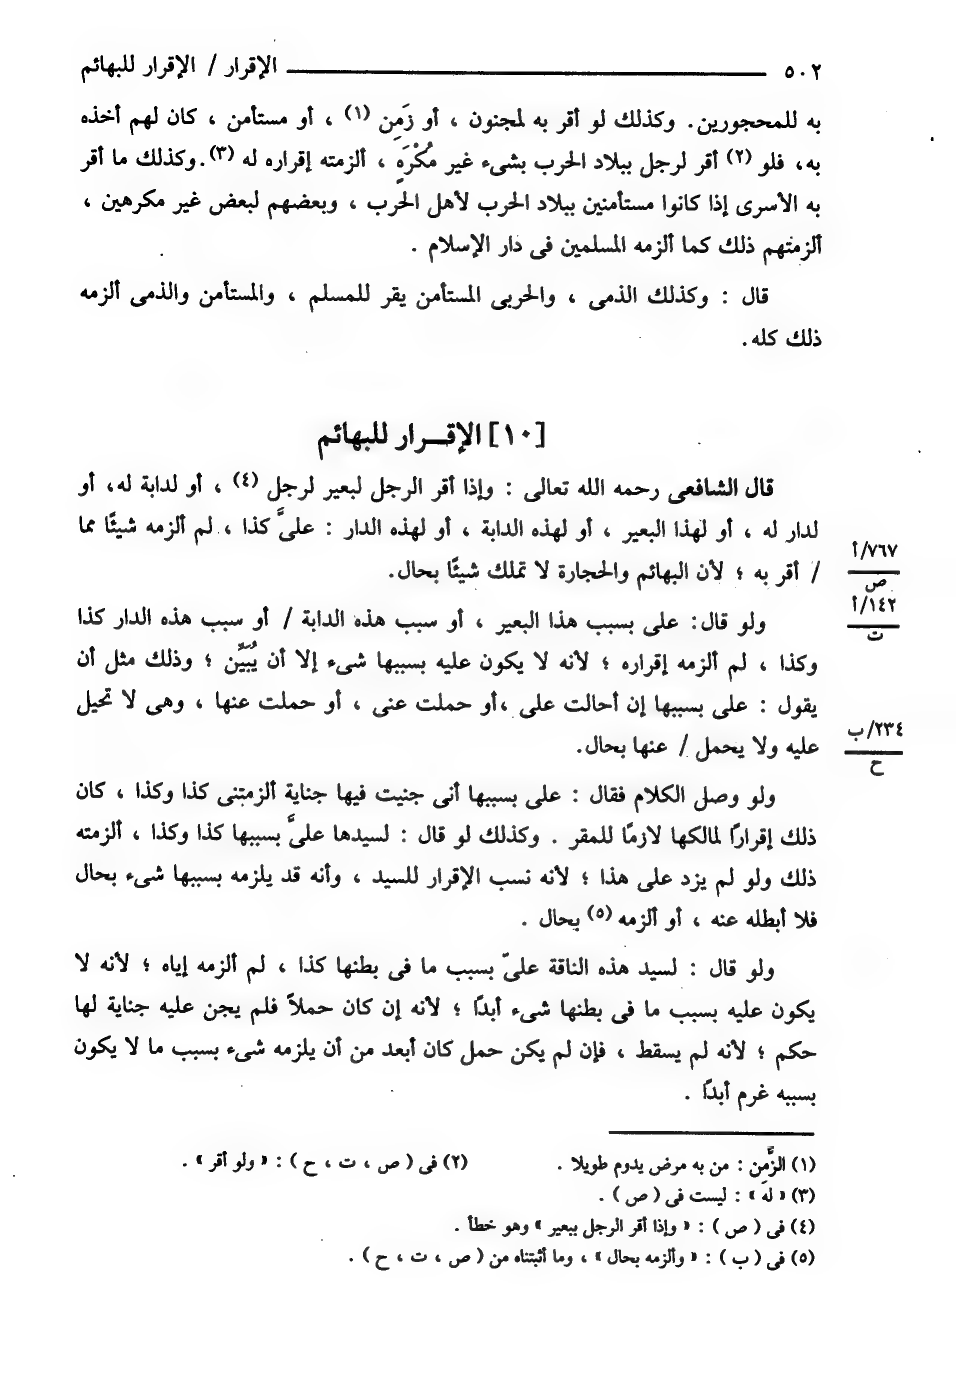 ٥٠٢ ـــــــــــــــــــــ الإقرار / الإقرار للبهائم
به للمحجورين. وكذلك لو أقر به لمجنون ، أو زَمِن (١) ، أو مستأمن ، كان لهم أخذه
به، فلو (٢) أقر لرجل ببلاد الحرب بشىء غير مُكْرَهٍ ، ألزمته إقراره له (٣).وكذلك ما أقر
به الأسرى إذا كانوا مستأمنين ببلاد الحرب لأهل الحرب ، وبعضهم لبعض غير مكرهين ،
ألزمتهم ذلك كما ألزمه المسلمين فى دار الإسلام .
قال : وكذلك الذمى ، والحربى المستأمن يقر للمسلم ، والمستأمن والذمى ألزمه
ذلك كله.
[١٠] الإقــرار للبهائم
قال الشافعى رحمه الله تعالى : وإذا أقر الرجل لبعير لرجل (٤) ، أو لدابة له، أو
لدار له ، أو لهذا البعير ، أو لهذه الدابة ، أو لهذه الدار : علىَّ كذا ، لم ألزمه شيئًا مما
٧٦٧/أ
ص
/ أقر به ؛ لأن البهائم والحجارة لا تملك شيئًا بحال.
١٤٢/أ
ت
ولو قال: على بسبب هذا البعير ، أو سبب هذه الدابة / أو سبب هذه الدار كذا
وكذا ، لم ألزمه إقراره ؛ لأنه لا يكون عليه بسببها شىء إلا أن يُبَيِّن ؛ وذلك مثل أن
يقول : على بسببها إن أحالت على ،أو حملت عنى ، أو حملت عنها ، وهى لا تحيل
٢٣٤/ب
ح
عليه ولا يحمل / عنها بحال.
ولو وصل الكلام فقال : على بسببها أنى جنيت فيها جناية ألزمتنى كذا وكذا ، كان
ذلك إقرارًا لمالكها لازمًا للمقر . وكذلك لو قال : لسيدها علىَّ بسببها كذا وكذا ، ألزمته
ذلك ولو لم يزد على هذا ؛ لأنه نسب الإقرار للسيد ، وأنه قد يلزمه بسببها شىء بحال
فلا أبطله عنه ، أو ألزمه (٥) بحال .
ولو قال : لسيد هذه الناقة علىّ بسبب ما فى بطنها كذا ، لم ألزمه إياه ؛ لأنه لا
يكون عليه بسبب ما فى بطنها شىء أبدًا ؛ لأنه إن كان حملاً فلم يجن عليه جناية لها
حكم ؛ لأنه لم يسقط ، فإن لم يكن حمل كان أبعد من أن يلزمه شىء بسبب ما لا يكون
بسببه غرم أبدًا .
(١) الزَّمِن : من به مرض يدوم طويلا . (٢) فى ( ص ، ت ، ح ) : « ولو أقر » .
(٣) « له » : ليست فى ( ص ) .
(٤) فى ( ص ) : « وإذا أقر الرجل ببعير » وهو خطأ .
(٥) فى ( ب ) : « وألزمه بحال » ، وما أثبتناه من ( ص ، ت ، ح ) .